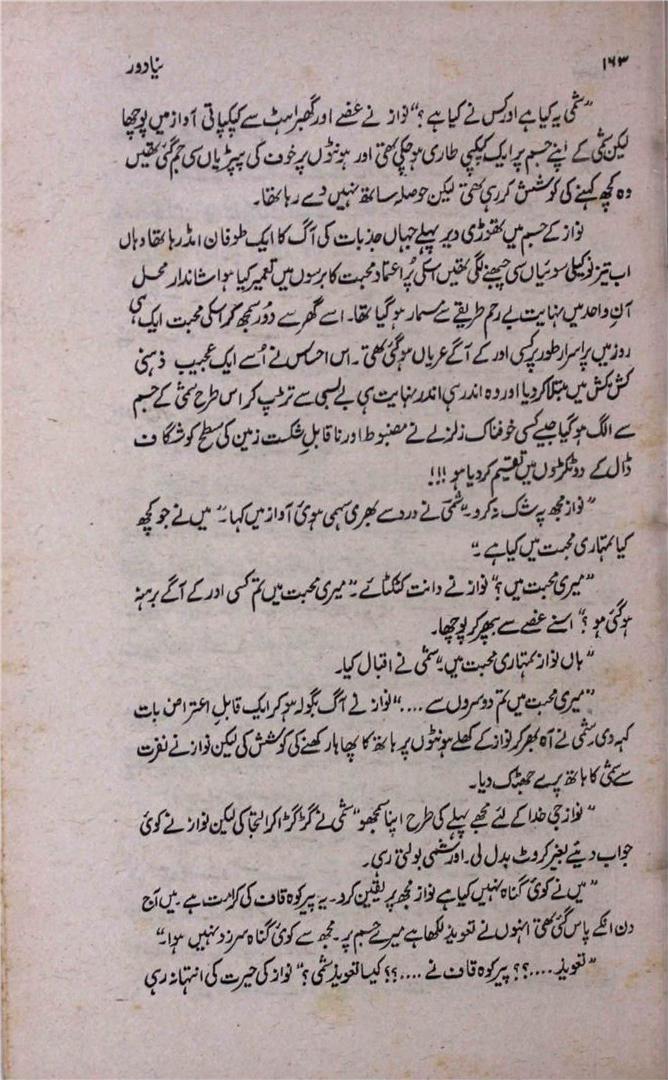 ۱۶۳ نیا دور
”شمی یہ کیا ہے اور کس نے کیا ہے؟“ نواز نے غصے اور گھبراہٹ سے کپکپاتی آواز میں پوچھا
لیکن شمی کے اپنے جسم پر ایک کپکپی طاری ہو چکی تھی اور ہونٹوں پر خوف کی پپڑیاں سی جم گئی تھیں
وہ کچھ کہنے کی کوشش کر رہی تھی لیکن حوصلہ ساتھ نہیں دے رہا تھا۔
نواز کے جسم میں تھوڑی دیر پہلے جہاں جذبات کی آگ کا ایک طوفان امڈ رہا تھا وہاں
اب تیز نوکیلی سوئیاں سی چبھنے لگی تھیں اسکی پُر اعتماد محبت کا برسوں میں تعمیر کیا ہوا شاندار محل
آنِ واحد میں نہایت بے رحم طریقے سے مسمار ہو گیا تھا۔ اسے گھر سے دور سمجھ کر اسکی محبت ایک ہی
روز میں پر اسرار طور پر کسی اور کے آگے عریاں ہو گئی تھی۔ اس احساس نے اُسے ایک عجیب ذہنی
کش مکش میں مبتلا کر دیا اور وہ اندر ہی اندر نہایت ہی بے بسی سے تڑپ کر اس طرح شمی کے جسم
سے الگ ہو گیا جیسے کسی خوفناک زلزلے نے مضبوط اور ناقابلِ شکست زمین کی سطح کو شگاف
ڈال کے دو ٹکڑوں میں تقسیم کر دیا ہو !!!
”نواز مجھ پہ شک نہ کرو۔“ شمی نے درد سے بھری سہمی ہوئی آواز میں کہا۔ ”میں نے جو کچھ
کیا تمہاری محبت میں کیا ہے۔“
”میری محبت میں؟“ نواز نے دانت کٹکٹائے۔ ”میری محبت میں تم کسی اور کے آگے برہنہ
ہو گئی ہو؟“ اسنے غصے سے بپھر کر پوچھا۔
”ہاں نواز تمہاری محبت میں۔“ شمی نے اقبال کیا۔
”میری محبت میں تم دوسروں سے ....“ نواز نے آگ بگولہ ہو کر ایک قابلِ اعتراض بات
کہہ دی۔ شمی نے آہ بھر کر نواز کے کھلے ہونٹوں پر ہاتھ کا پھاہا رکھنے کی کوشش کی لیکن نواز نے نفرت
سے شمی کا ہاتھ پرے جھٹک دیا۔
”نواز جی خدا کے لئے مجھے پہلے کی طرح اپنا سمجھو“ شمی نے گڑگڑا کر التجا کی لیکن نواز نے کوئی
جواب دیئے بغیر کروٹ بدل لی۔ اور شمی بولتی رہی۔
”میں نے کوئی گناہ نہیں کیا ہے نواز مجھ پر یقین کرو۔ یہ پیر کوہ قاف کی کرامت ہے۔ میں آج
دن انکے پاس گئی تھی انہوں نے تعویذ لکھا ہے میرے جسم پر۔ مجھ سے کوئی گناہ سرزد نہیں ہوا۔“
”تعویذ....؟؟ پیر کوہ قاف نے ....؟؟ کیسا تعویذ شمی؟“ نواز کی حیرت کی انتہا نہ رہی